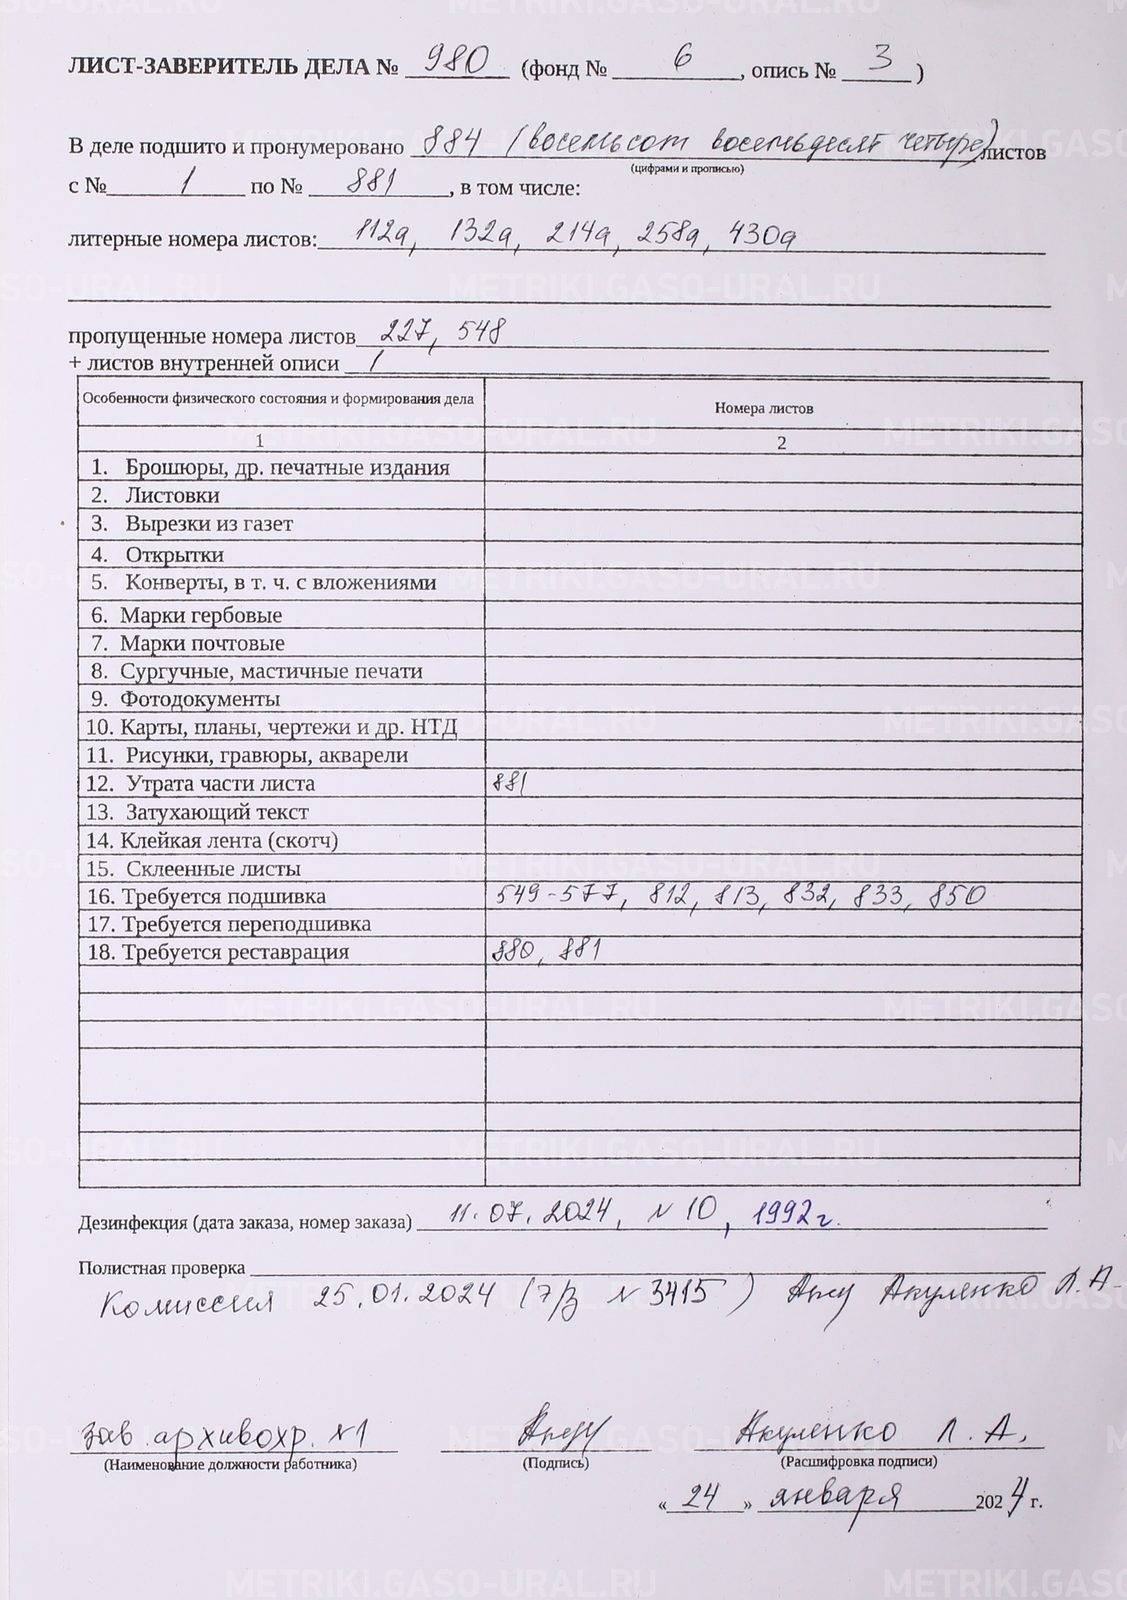 ЛИСТ-ЗАВЕРИТЕЛЬ ДЕЛА № 980 (фонд № 6, опись № 3)
В деле подшито и пронумеровано 884 (восемьсот восемьдесят четыре) листов
(цифрами и прописью)
с № 1 по № 881, в том числе:
литерные номера листов: 112а, 132а, 214а, 258а, 430а
пропущенные номера листов 227, 548
+ листов внутренней описи 1
Особенности физического состояния и формирования дела Номера листов
1 2
1. Брошюры, др. печатные издания
2. Листовки
3. Вырезки из газет
4. Открытки
5. Конверты, в т. ч. с вложениями
6. Марки гербовые
7. Марки почтовые
8. Сургучные, мастичные печати
9. Фотодокументы
10. Карты, планы, чертежи и др. НТД
11. Рисунки, гравюры, акварели
12. Утрата части листа 881
13. Затухающий текст
14. Клейкая лента (скотч)
15. Склеенные листы
16. Требуется подшивка 549-577, 812, 813, 832, 833, 850
17. Требуется переподшивка
18. Требуется реставрация 880, 881
Дезинфекция (дата заказа, номер заказа) 11.07.2024, №10, 1992г.
Полистная проверка
Комиссия 25.01.2024 (т/з №3415) Акуленко Л.А.
зав. архивохр. №1 Акуленко Л.А.
(Наименование должности работника) (Подпись) (Расшифровка подписи)
«24» января 2024 г.
METRIKI.GASO-URAL.RU